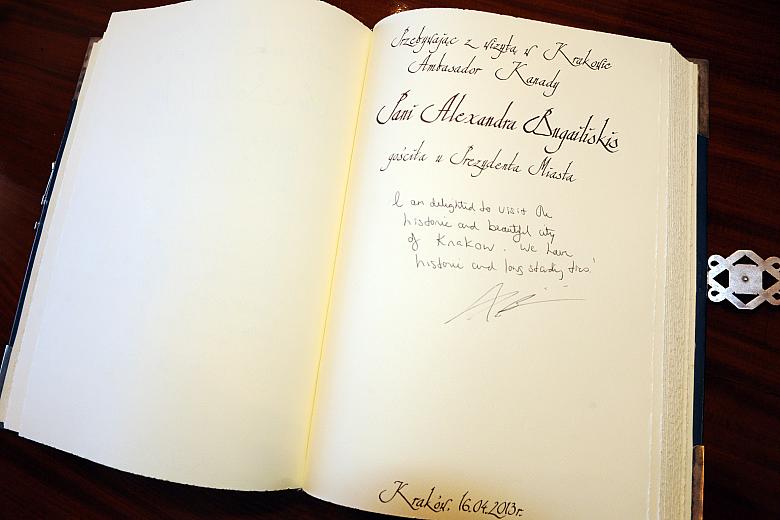 Przebywając z wizytą w Krakowie
Ambasador Kanady
Pani Alexandra Bugailiskis
gościła u Prezydenta Miasta
I am delighted to visit the
historic and beautiful city
of Krakow. We have
historic and long standing ties!
Kraków, 16.04.2013r.